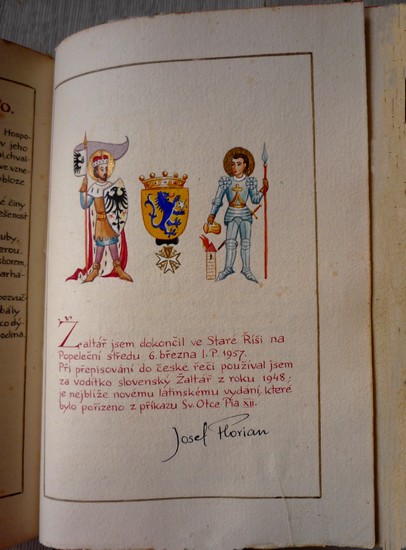 o.
Hospo-
v jeho
ai, chval-
ve vzne-
bloze
é činy
ešenost
uby,
erou.
skorem,
arha-
pozvuč-
bály
co dý-
odina.
Žaltář jsem dokončil ve Staré Říši na
Popeleční středu 6. března l. P. 1957.
Při přepisování do české řeči používal jsem
za vodítko slovenský Žaltář z roku 1948;
je nejblíže novému latinskému vydání, které
bylo pořízeno z příkazu Sv. Otce Pia XII.
Josef Florian